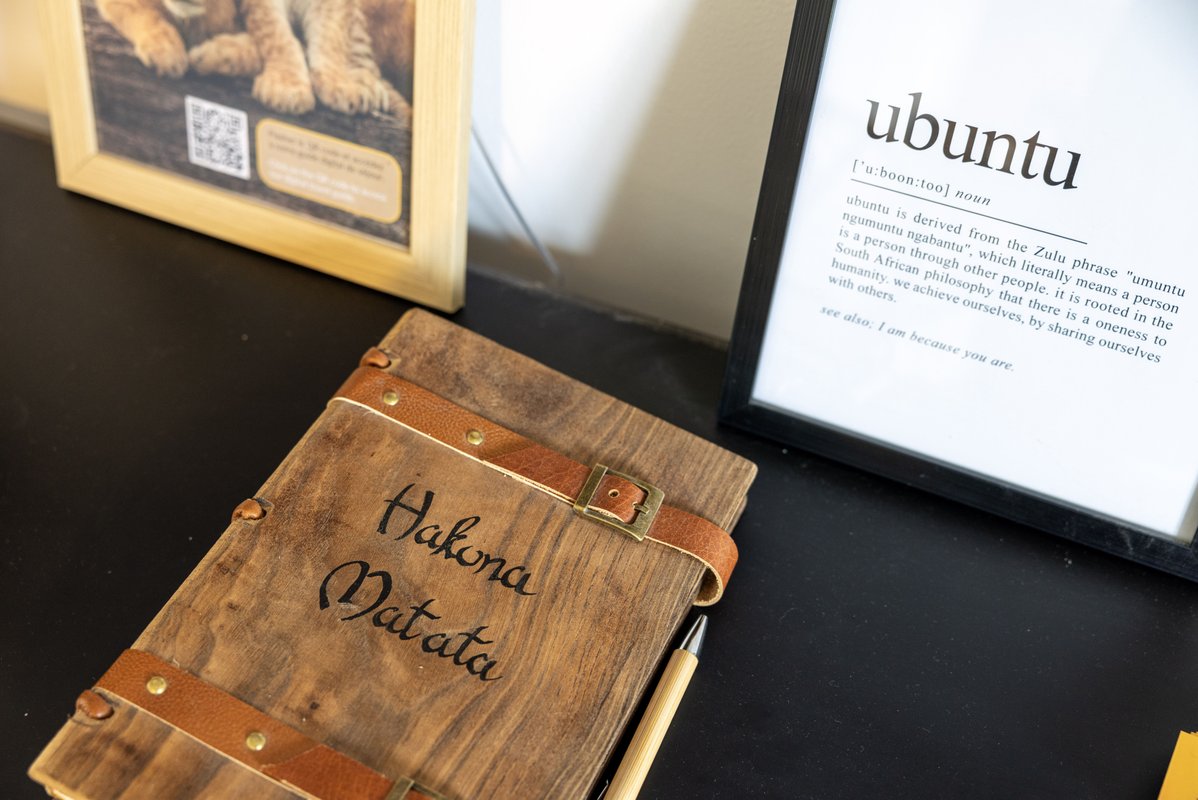 ubuntu
['u:boon:too] noun
ubuntu is derived from the Zulu phrase "umuntu
ngumuntu ngabantu", which literally means a person
is a person through other people. it is rooted in the
South African philosophy that there is a oneness to
humanity. we achieve ourselves, by sharing ourselves
with others.
see also; I am because you are.
Hakona
Matata